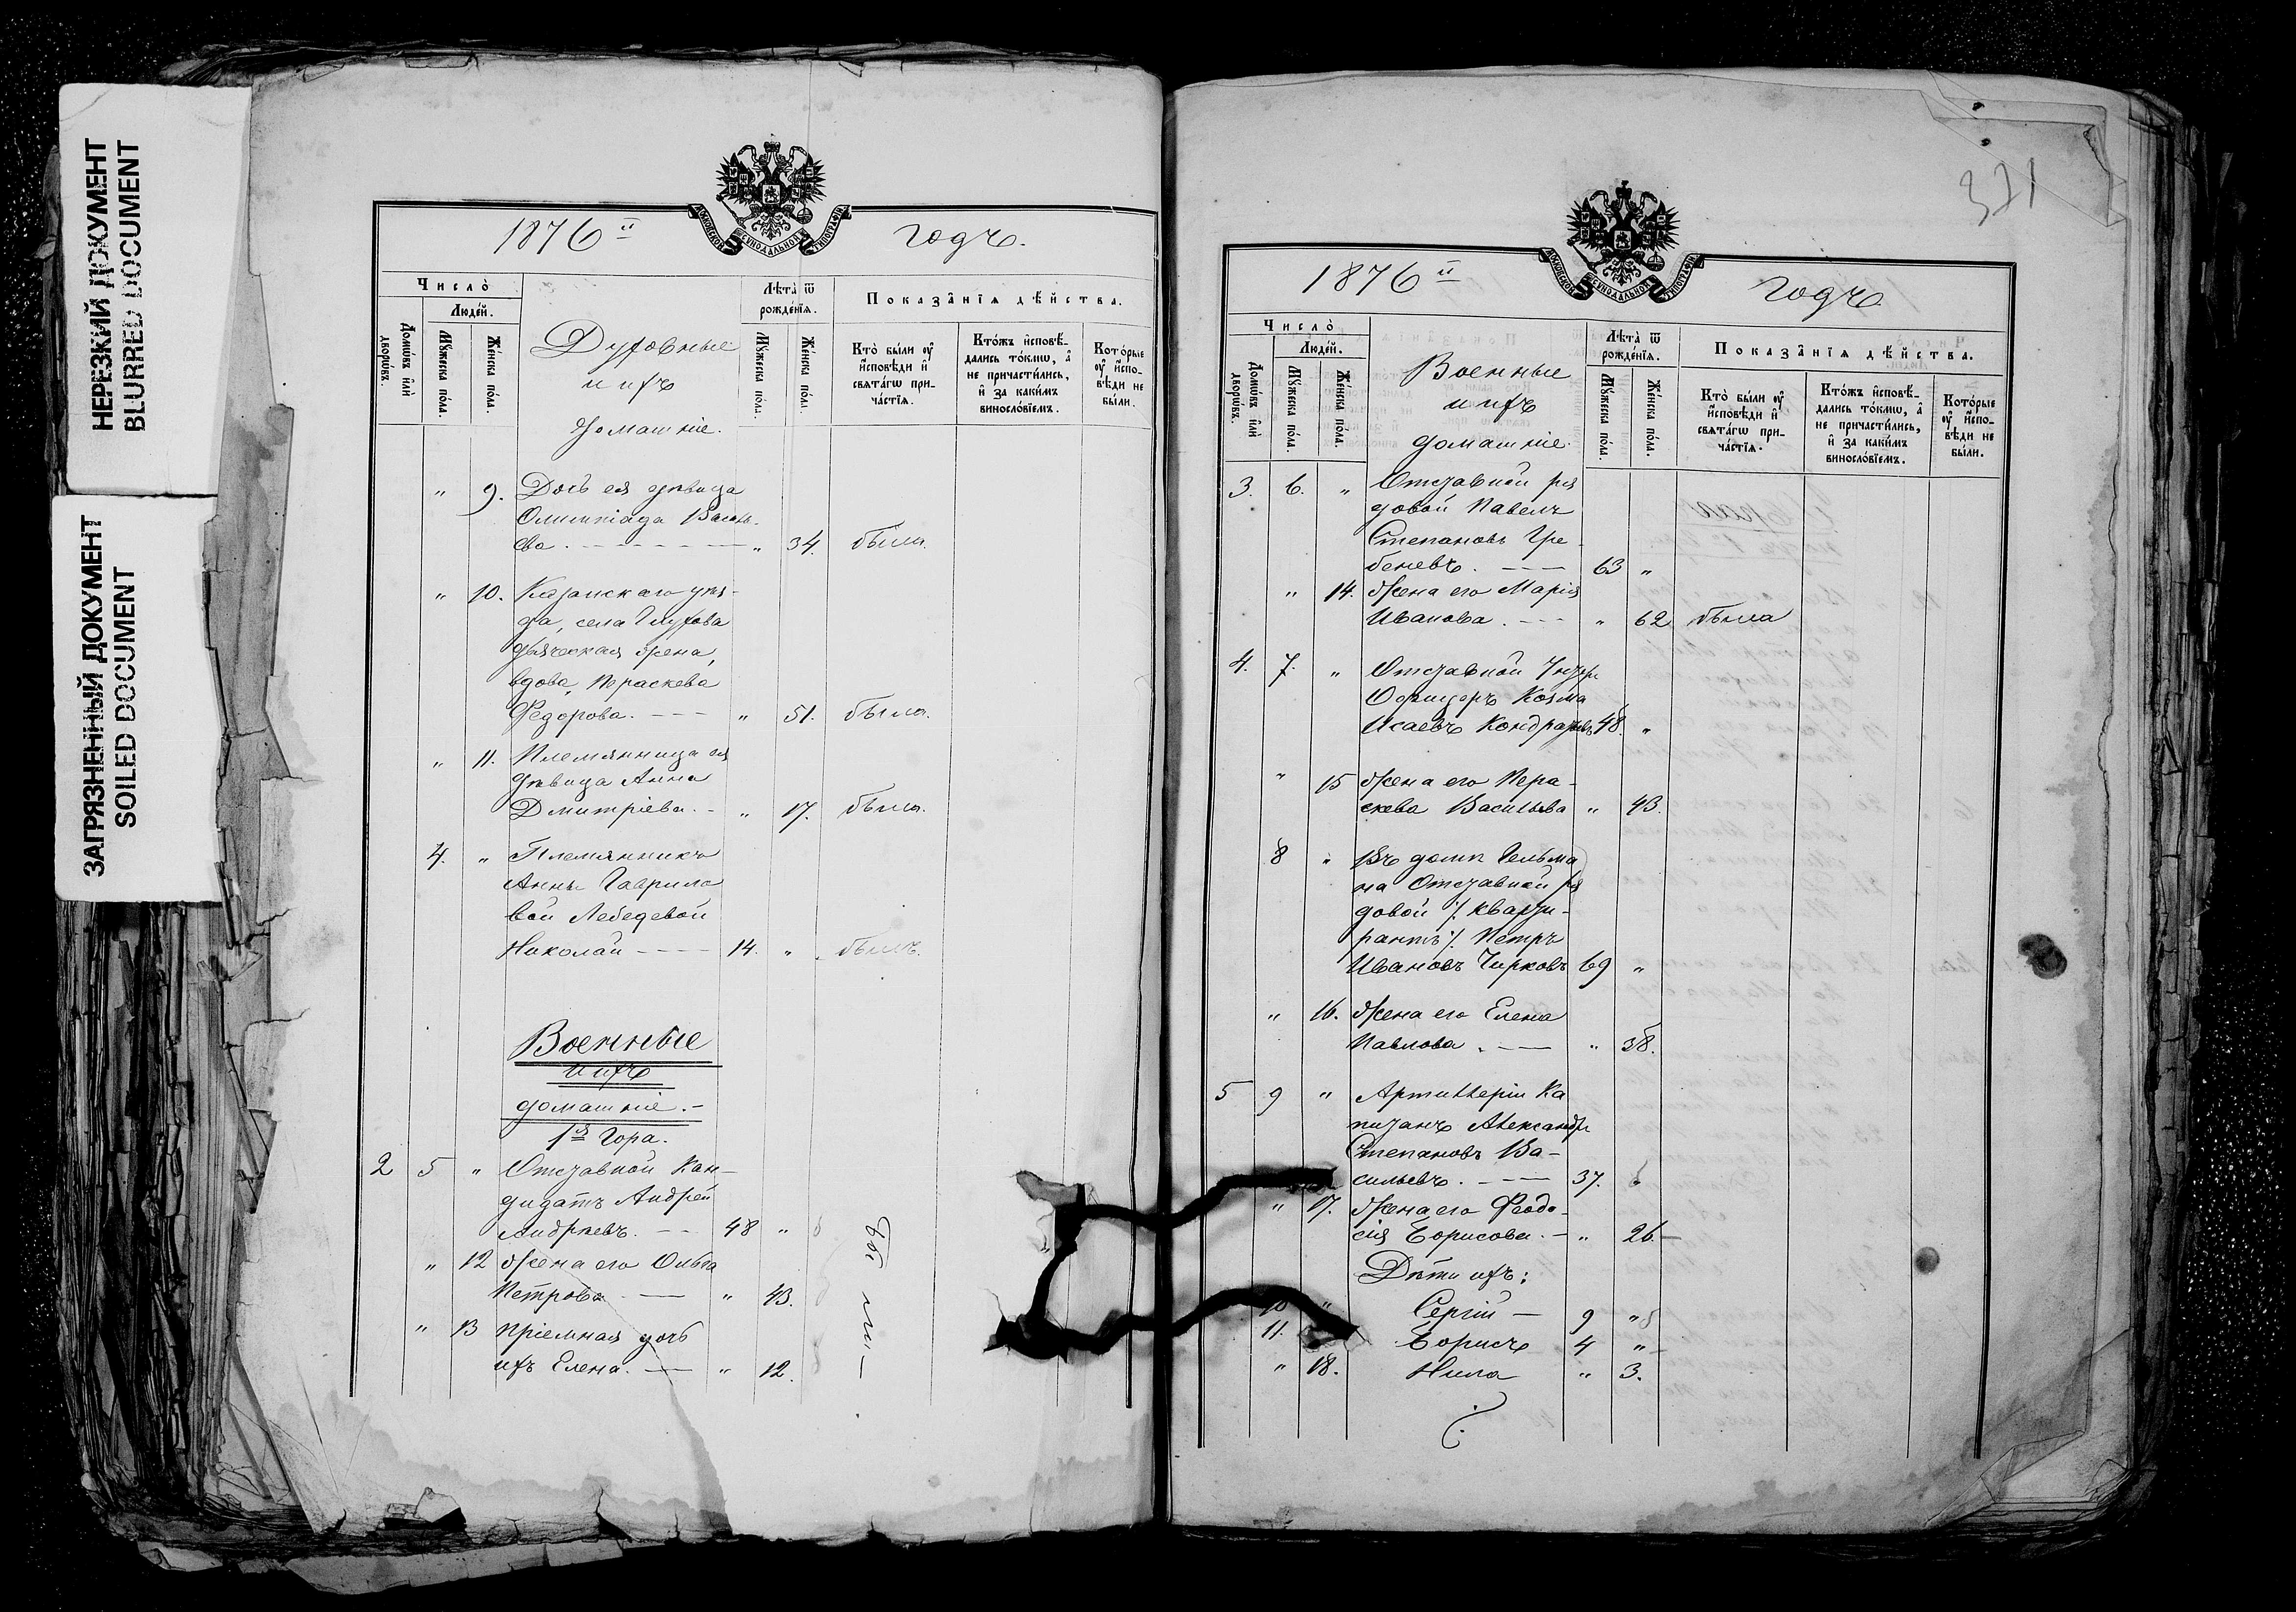 НЕРЕЗКИЙ ДОКУМЕНТ
BLURRED DOCUMENT
ЗАГРЯЗНЕННЫЙ ДОКУМЕНТ
SOILED DOCUMENT
1876й годъ.
МОСКОВСКОЙ СѴНОДАЛЬНОЙ ТИПОГРАФІИ
Число̀
Людéй.
Домѡ́въ и҆лѝ дворѡ́въ.
Мꙋ́жеска пóла.
Жéнска пóла.
Духовные
и ихъ
домашніе.
Лѣ́та ѿ рождéнїѧ.
Мꙋ́жеска пóла.
Жéнска пóла.
Показа̑нїѧ дѣ́йства.
Ктò бы́ли ᲂу҆
и҆сповѣ́ди и҆
свѧта́гѡ при-
ча́стїѧ.
Ктóжъ и҆сповѣ́-
дались тóкмѡ, а҆
не причасти́лись,
и҆ за каки́мъ
винослóвїемъ.
Котóрые
ᲂу҆ и҆спо-
вѣ́ди не
бы́ли.
" 9. Дочь ея дѣвица
Олимпіада Василь-
ева. " 34. была.
" 10. Казанскаго уѣз-
да, села Глухова
дьяческая жена,
вдова, Параскева
Федорова. " 51. была.
" 11. Племянница ея
дѣвица Анна
Дмитріева. " 17. была.
4. " Племянникъ
Анны Гаврило
вой Лебедевой
Николай 14. " былъ.
Военные
и ихъ
домашніе.
1я Гора.
2 5 " Отставной Кан-
дидатъ Андрей
Андреевъ. 48 "
" 12 Жена его Ольга
Петрова " 43.
" 13 Пріемная дочь
ихъ Елена. " 12.
были
371
1876й годъ
МОСКОВСКОЙ СѴНОДАЛЬНОЙ ТИПОГРАФІИ
Число̀
Людéй.
Домѡ́въ и҆лѝ дворѡ́въ.
Мꙋ́жеска пóла.
Жéнска пóла.
Военные
и ихъ
домашніе.
Лѣ́та ѿ рождéнїѧ.
Мꙋ́жеска пóла.
Жéнска пóла.
Показа̑нїѧ дѣ́йства.
Ктò бы́ли ᲂу҆
и҆сповѣ́ди и҆
свѧта́гѡ при-
ча́стїѧ.
Ктóжъ и҆сповѣ́-
дались тóкмѡ, а҆
не причасти́лись,
и҆ за каки́мъ
винослóвїемъ.
Котóрые
ᲂу҆ и҆спо-
вѣ́ди не
бы́ли.
3. 6. " Отставной ря
довой Павелъ
Степановъ Гре-
беневъ. 63 "
" 14. Жена его Марія
Иванова. " 62 была
4. 7. " Отставной Унтеръ
Офицеръ Козма
Исаевъ Кондратьевъ 48. "
" 15 Жена его Пара-
скева Васильева " 43.
8 " Въ домѣ Гельма
на Отставной ря
довой /. Кварти-
рантъ /. Петръ
Ивановъ Чирковъ 69 "
" 16. Жена его Елена
Павлова. " 38.
5 9 " Артиллеріи Ка
питанъ Александръ
Степановъ Ва-
сильевъ. 37.
" 17. Жена его Феодо-
сія Борисова. " 26.
Дѣти ихъ:
10 " Сергій 9 "
11. Борисъ 4 "
" 18. Нила " 3.